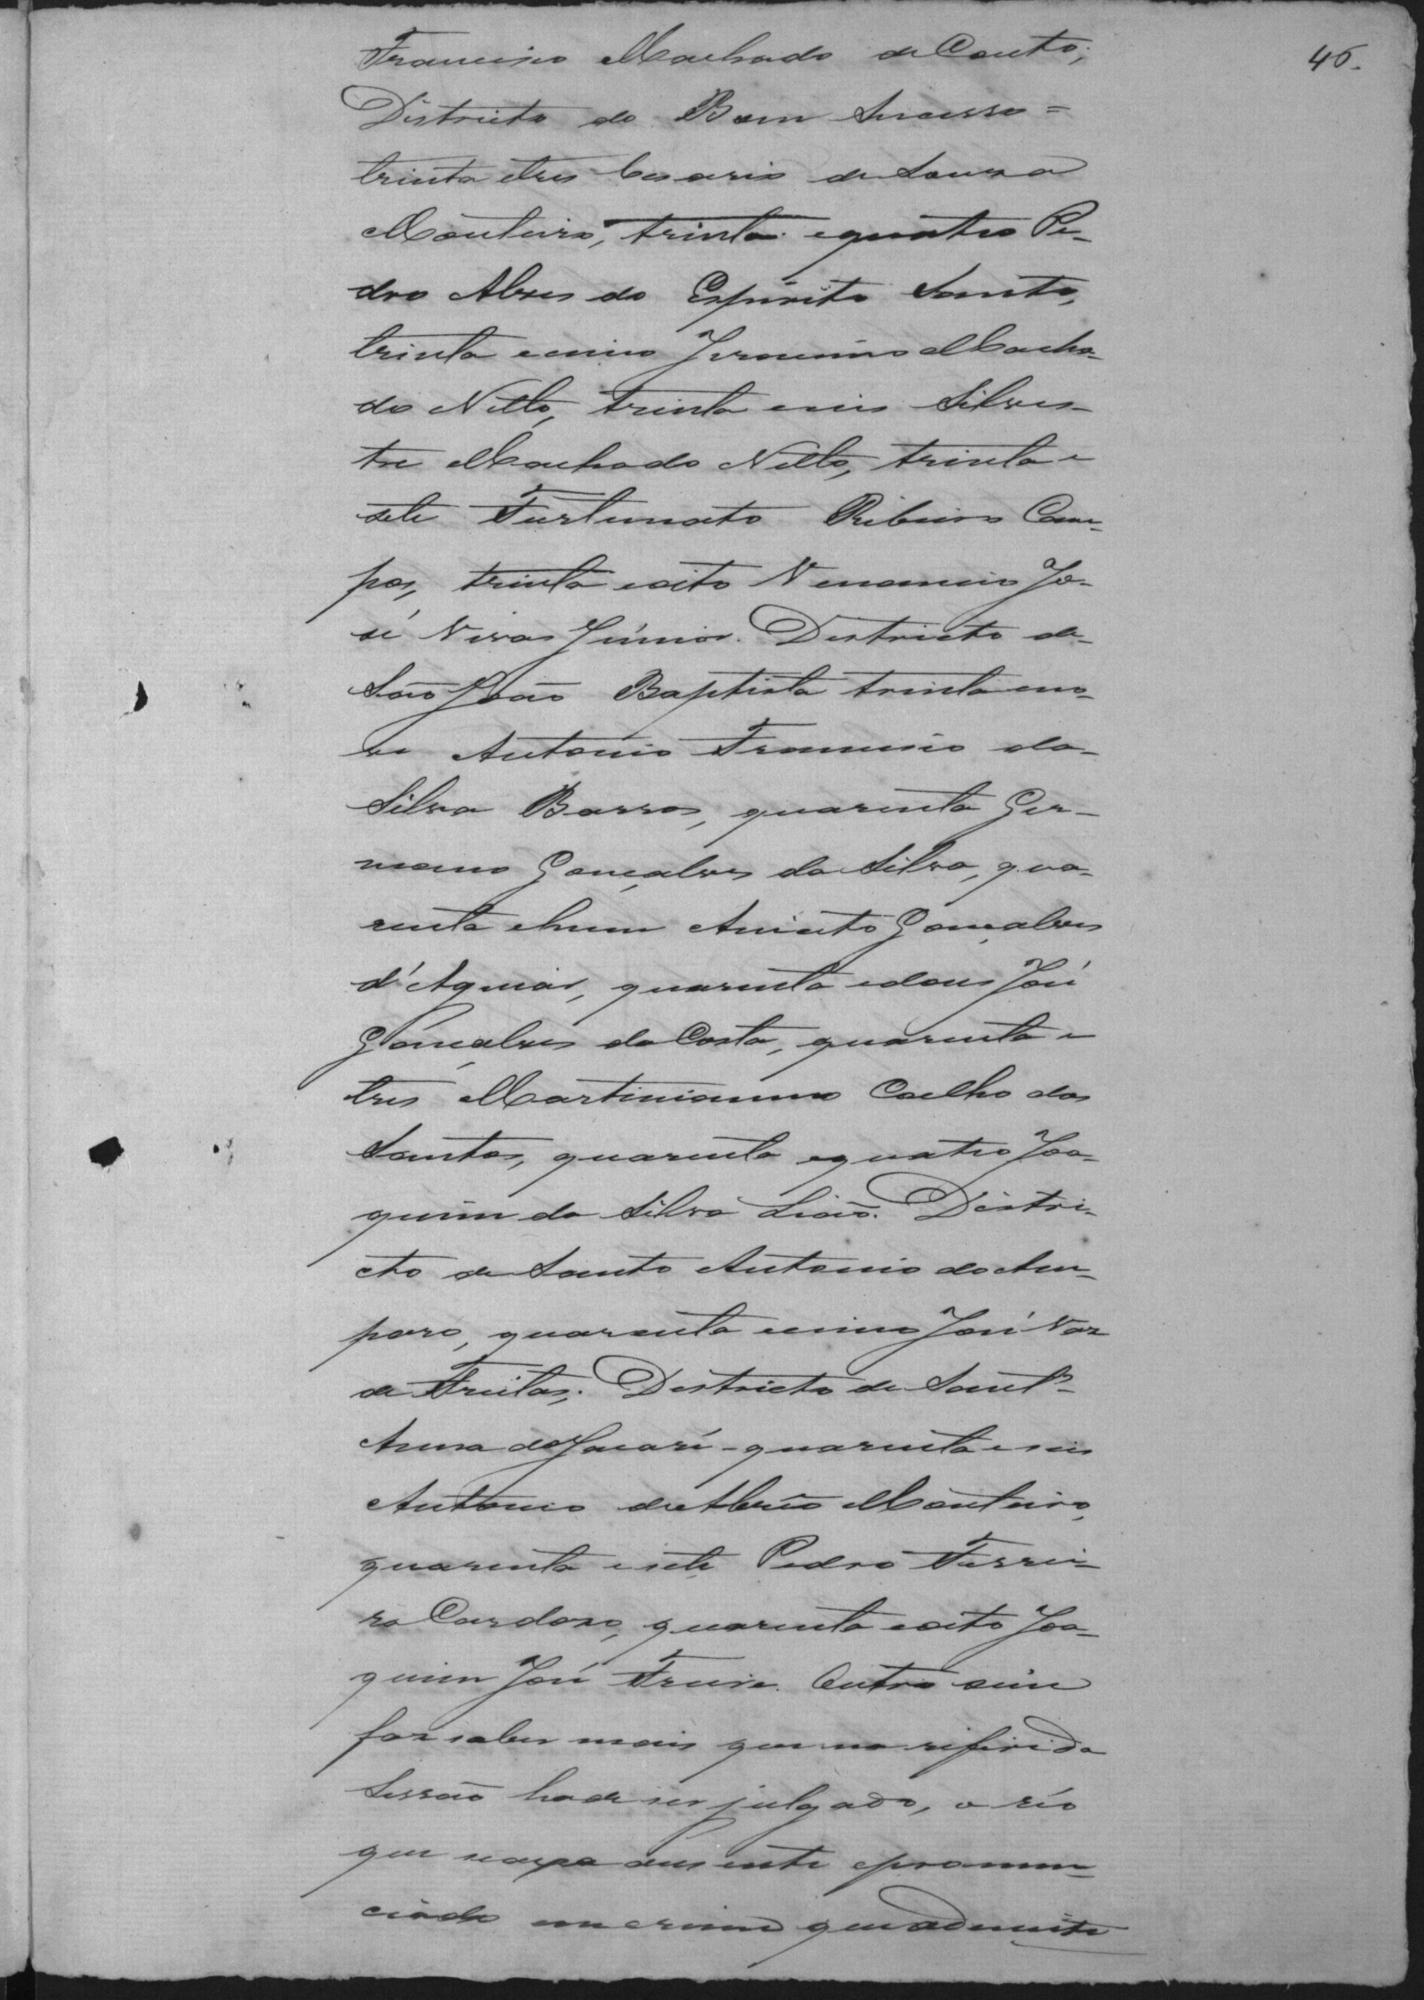 46.
Francisco Machado de Couto;
Districto do Bom Sucesso =
trinta e tres Cesario de Souza
Monteiro, trinta e quatro Pe-
dro Alves do Espirito Santo,
trinta e cinco Jeronimo Macha-
do Netto, trinta e seis Silves-
tre Machado Netto, trinta e
sete Furtunato Ribeiro Cam-
pos, trinta e oito Venancio Jo-
sé Vivas Júnior. Districto de
São João Baptista trinta e no-
ve Antonio Francisco da
Silva Barros, quarenta Ger-
mano Gonçalves da Silva, qua-
renta e hum Aniceto Gonçalves
d'Aguiar, quarenta e dous José
Gonçalves da Costa, quarenta e
tres Martinianno Coelho dos
Santos, quarenta e quatro Joa-
quim da Silva Leão. Distri-
cto de Santo Antonio do Am-
paro, quarenta e cinco José Vaz
de Freitas; Districto de Sant'-
Anna do Jacaré - quarenta e seis
Antonio de Abrêo Monteiro,
quarenta e sete Pedro Ferrei-
ra Cardozo, quarenta e oito Joa-
quim José Freire. Outro sim
faz saber mais que na referida
Sessão hade ser julgado, o réo
que ausente e pronun-
ciado em crime que admitte